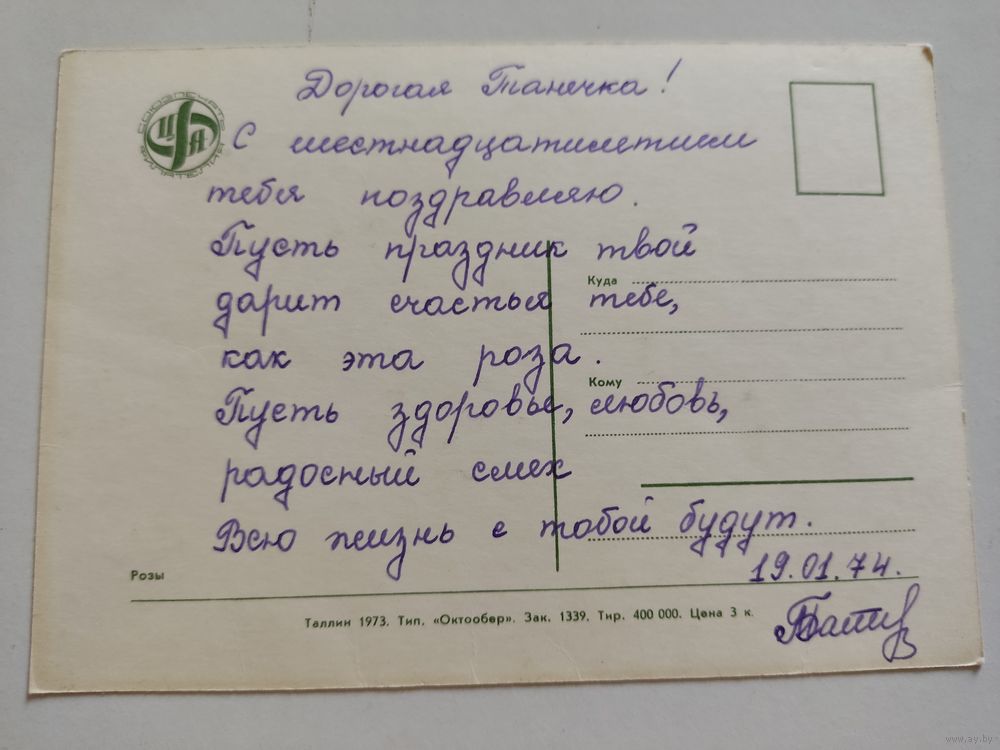 Дорогая Танечка!
С шестнадцатилетием
тебя поздравляю.
Пусть праздник твой
дарит счастья тебе,
как эта роза.
Пусть здоровье, любовь,
радосный смех
Всю жизнь с тобой будут.
19.01.74.
СОЮЗПЕЧАТЬ
ЦФА
ФИЛАТЕЛИЯ
Куда
Кому
Розы
Таллин 1973. Тип. «Октообер». Зак. 1339. Тир. 400 000. Цена 3 к.
www.ay.by